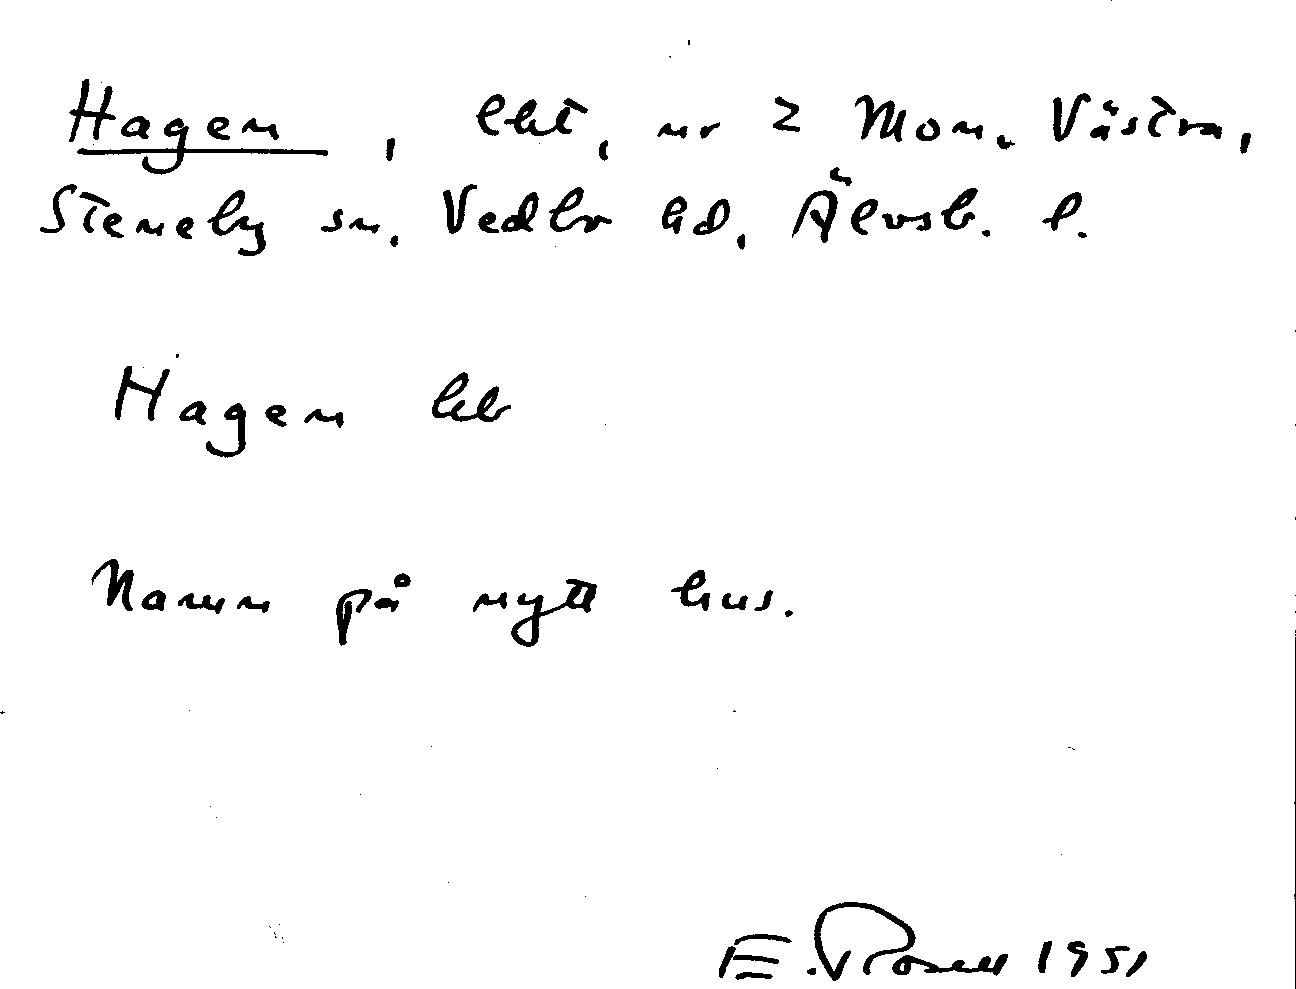 Hagen, lht, nr 2 Mon, Västra,
Steneby sn, Vedbo hd, Älvsb. l.
Hagen
Namn på nytt hus.
E. Rosell 1951